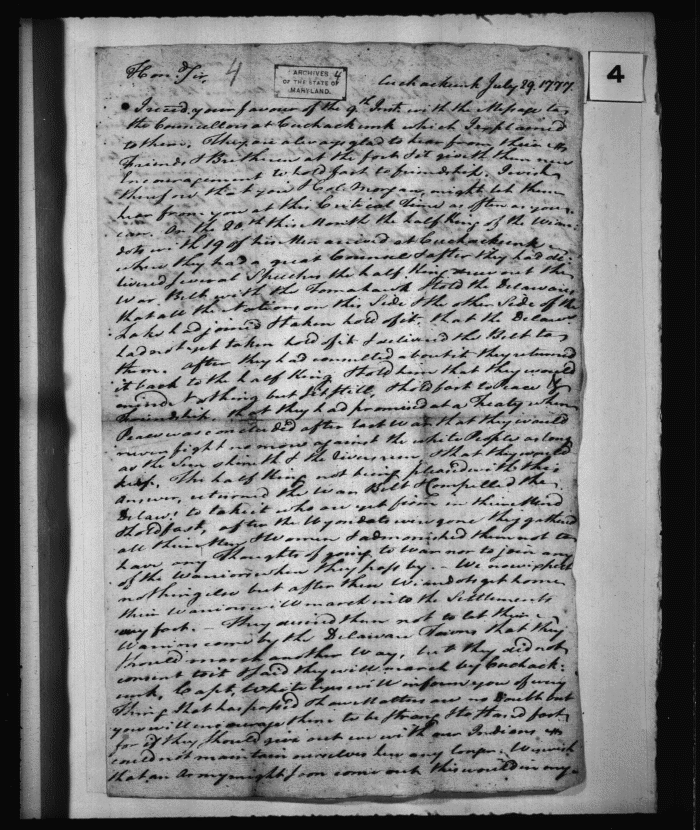 Hon.d Sir, 4
ARCHIVES 4
OF THE STATE OF
MARYLAND.
4
Cuchackunk July 29. 1777.
I recd. your favour of the 9th Inst. with the Message to
the Councellors at Cuchackunk which I explained
to them. They are always glad to hear from their
Friends & Brethren at the fort & it giveth them new
Encouragement to hold fast to friendship. I wish
therefore that you & Col. Morgan, might let them
hear from you at this Critical Time as often as you
can. On the 20th this Month the half King of the Wian-
dots with 19 of his Men arrived at Cuchackunk
when they had a great Council & after they had de-
livered several Speeches the half King drew out the
War Belt with the Tomahawk & told the Delawares
that all the Nations on this Side & the other Side of the
Lake had joined & taken hold of it. that the Delaws.
had not yet taken hold of it & delivered the Belt to
them. After they had consulted about it they returned
it back to the half King & told him that they would
mind Nothing but sit still, & hold fast to Peace &
Friendship, that they had promised at a Treaty when
Peace was concluded after last War that they would
never fight no more against the white People as long
as the Sun shineth & the Rivers run, & that they would
keep. The half King not being pleased with this
Answer, returned the War Belt & compelled the
Delaws. to take it who are yet firm in their Mind
& hold fast, after the Wyandots were gone they gathered
all their Men & Women & admonished them not to
have any Thoughts of going to War nor to join any
of the Warriors when they pass by. — We now expect
nothing else but after these Wiandots get home
their Warriors will march into the Settlements
any fort. — They desired them not to let their
Warriors come by the Delaware Towns that they
should march another Way, but they did not
consent to it & said they will march by Cuchack-
unk, Capt. White Eyes will inform you of every
Thing that has passed & how Matters are no Doubt but
you will encourage them to be strong & to stand fast,
for if they should give out we with our Indians
could not maintain ourselves here any longer. We wish
that an Army might soon come out this would in my